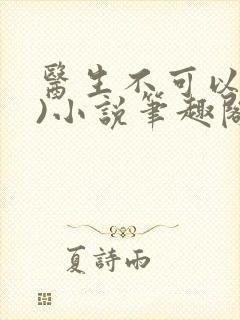 醫生不可以
)小說筆趣閣
夏詩雨